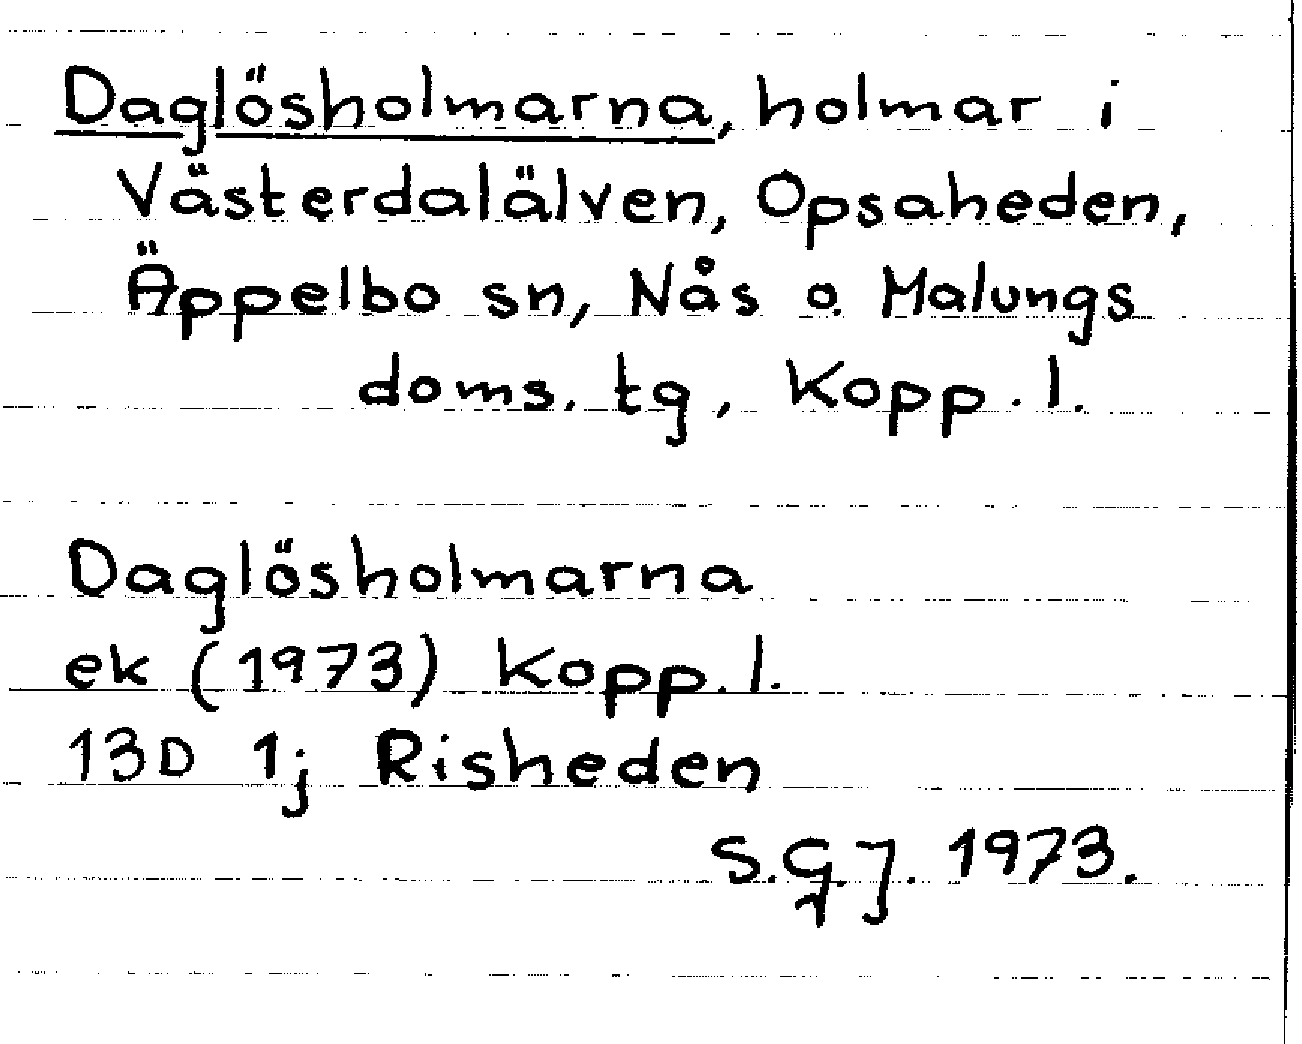 Daglösholmarna, holmar i
Västerdalälven, Opsaheden,
Äppelbo sn, Nås o. Malungs
doms. tg, Kopp. l.
Daglösholmarna
ek (1973) Kopp. l.
13D 1j Risheden
S.G.J. 1973.